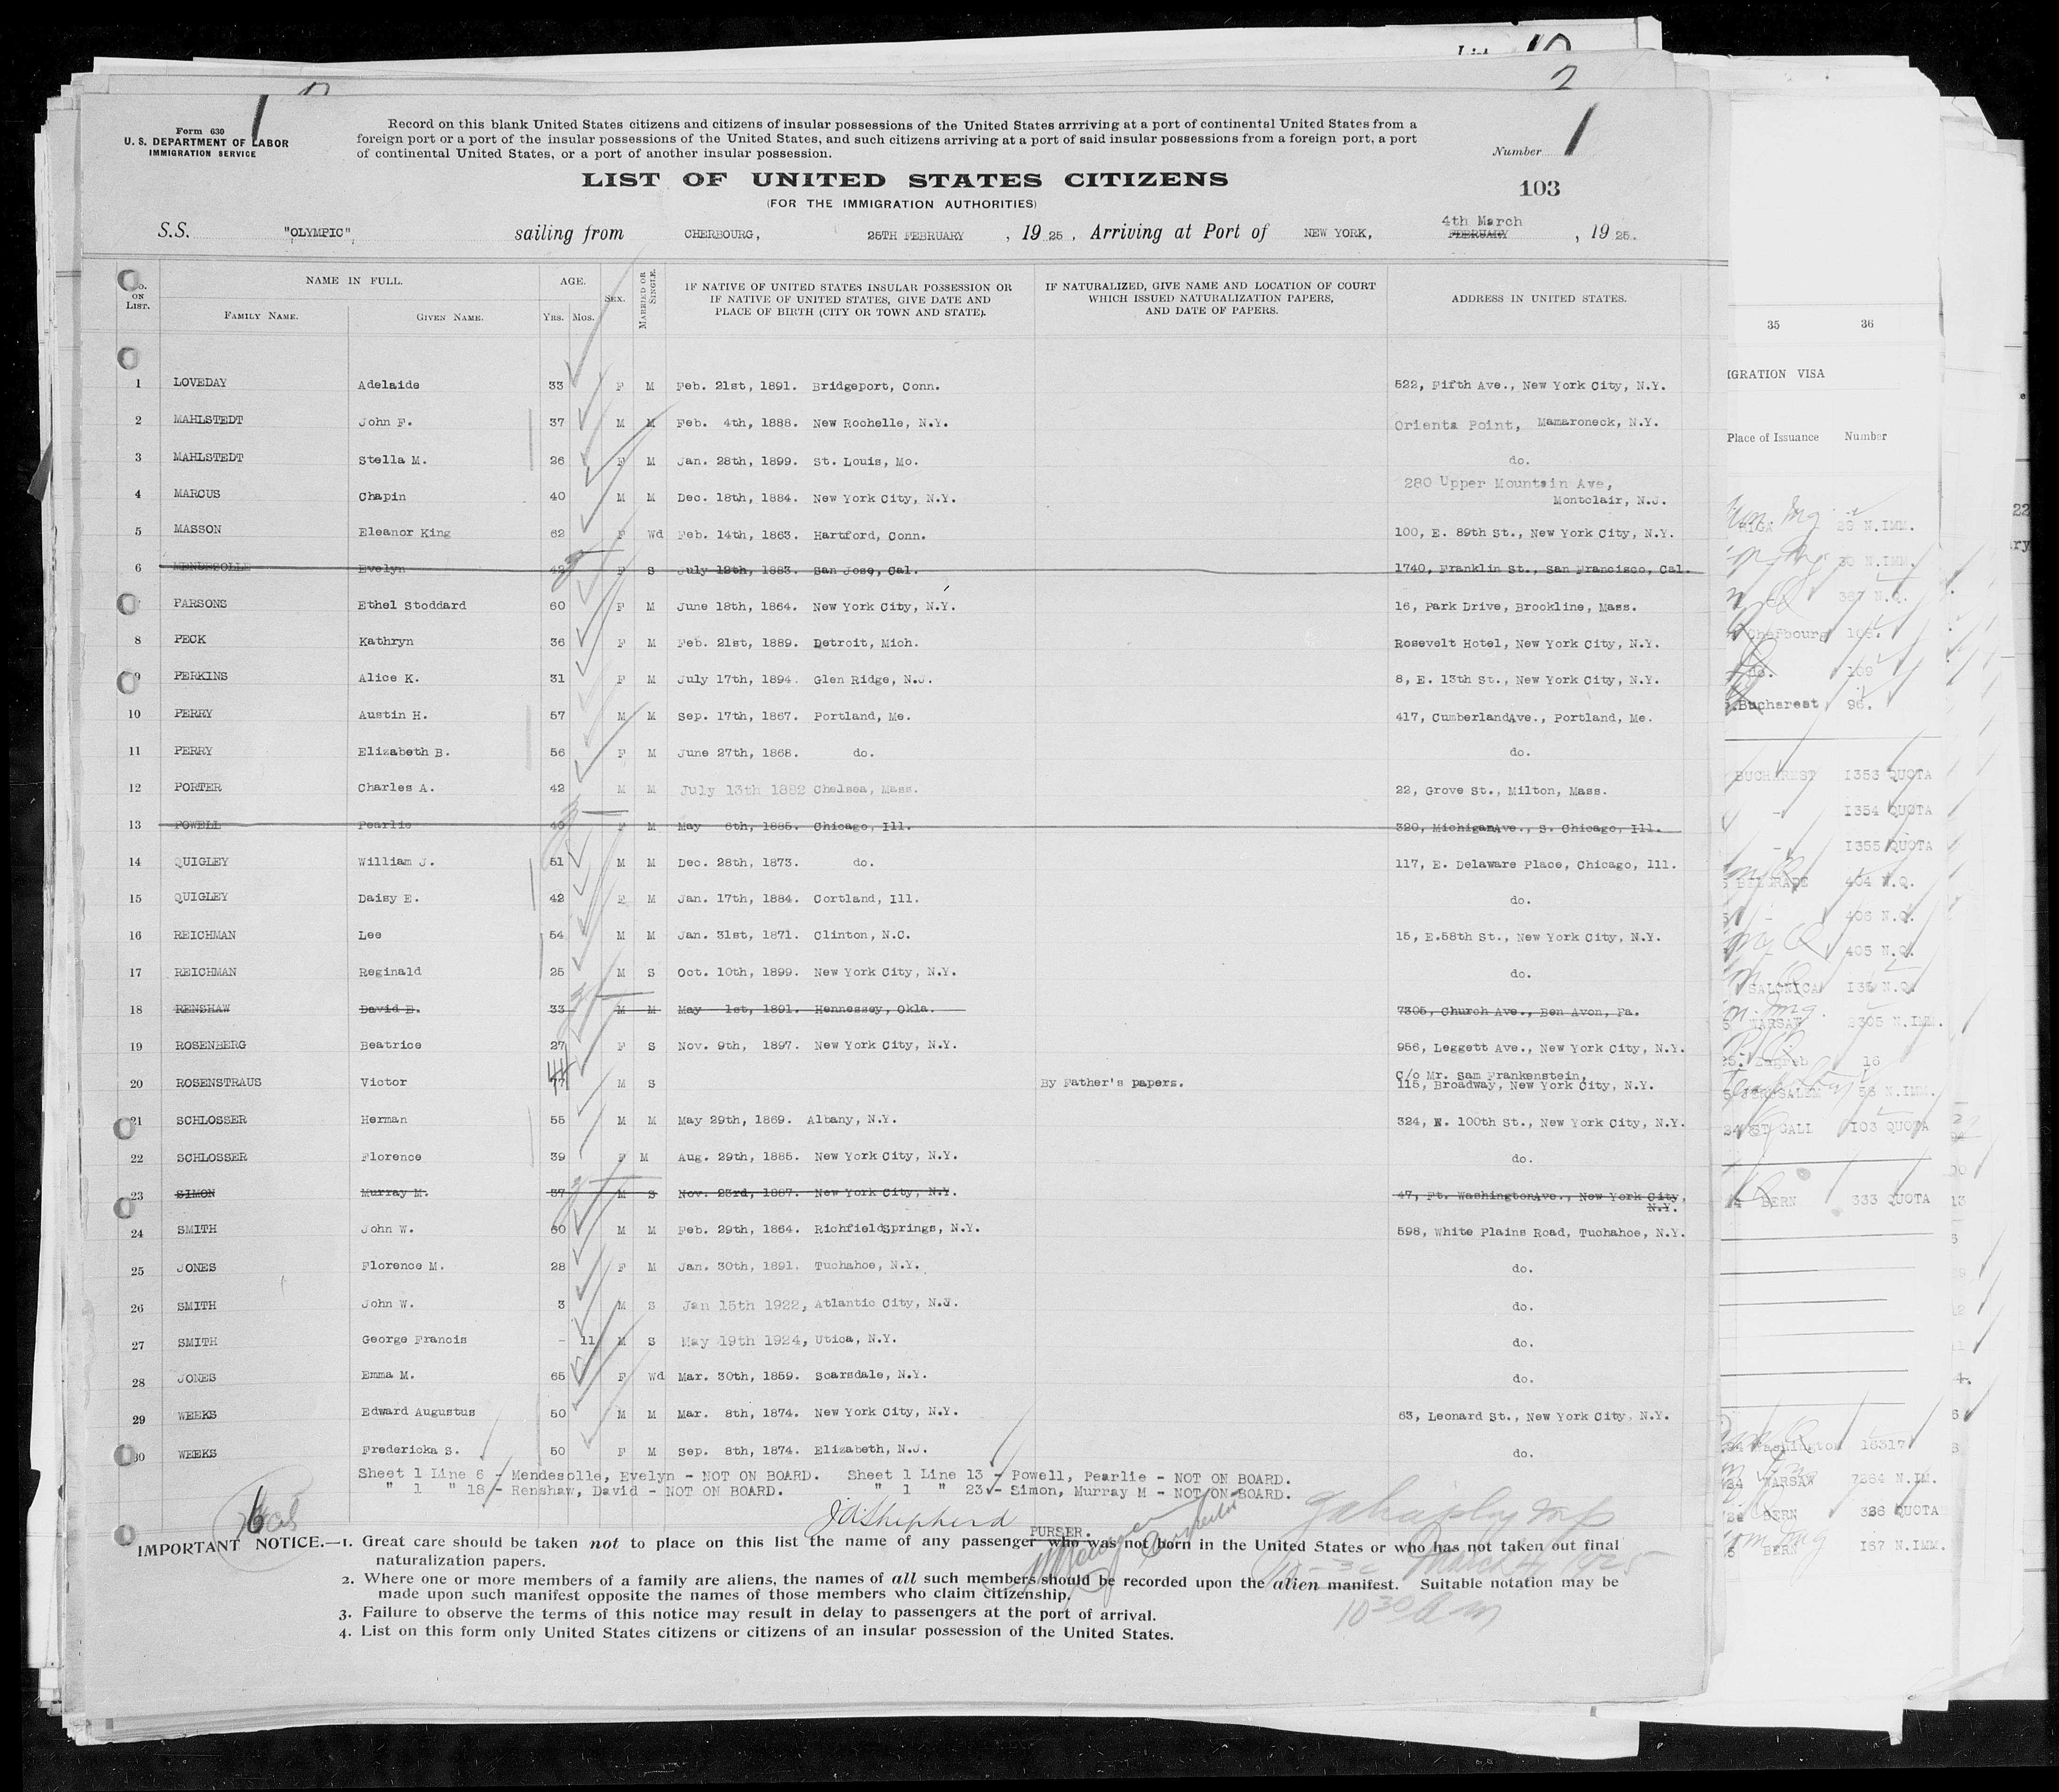 List 10
2
1
Form 630
U. S. DEPARTMENT OF LABOR
IMMIGRATION SERVICE
Record on this blank United States citizens and citizens of insular possessions of the United States arrriving at a port of continental United States from a
foreign port or a port of the insular possessions of the United States, and such citizens arriving at a port of said insular possessions from a foreign port, a port
of continental United States, or a port of another insular possession.
Number 1
LIST OF UNITED STATES CITIZENS
103
(FOR THE IMMIGRATION AUTHORITIES)
S.S. "OLYMPIC", sailing from CHERBOURG, 25TH FEBRUARY, 19 25, Arriving at Port of NEW YORK, 4th March FEBRUARY, 19 25.
No. ON LIST.
NAME IN FULL.
FAMILY NAME. GIVEN NAME.
AGE.
YRS. MOS.
SEX.
MARRIED OR SINGLE.
IF NATIVE OF UNITED STATES INSULAR POSSESSION OR
IF NATIVE OF UNITED STATES, GIVE DATE AND
PLACE OF BIRTH (CITY OR TOWN AND STATE).
IF NATURALIZED, GIVE NAME AND LOCATION OF COURT
WHICH ISSUED NATURALIZATION PAPERS,
AND DATE OF PAPERS.
ADDRESS IN UNITED STATES.
1 LOVEDAY Adelaide 33 F M Feb. 21st, 1891. Bridgeport, Conn. 522, Fifth Ave., New York City, N.Y.
2 MAHLSTEDT John F. 37 M M Feb. 4th, 1888. New Rochelle, N.Y. Orienta Point, Mamaroneck, N.Y.
3 MAHLSTEDT Stella M. 26 F M Jan. 28th, 1899. St. Louis, Mo. do.
4 MARCUS Chapin 40 M M Dec. 18th, 1884. New York City, N.Y. 280 Upper Mountain Ave,
Montclair, N.J.
5 MASSON Eleanor King 62 F Wd Feb. 14th, 1863. Hartford, Conn. 100, E. 89th St., New York City, N.Y.
6 MENDESOLLE Evelyn 42 F S July 12th, 1883. San Jose, Cal. 1740, Franklin St., San Francisco, Cal.
7 PARSONS Ethel Stoddard 60 F M June 18th, 1864. New York City, N.Y. 16, Park Drive, Brookline, Mass.
8 PECK Kathryn 36 F M Feb. 21st, 1889. Detroit, Mich. Rosevelt Hotel, New York City, N.Y.
9 PERKINS Alice K. 31 F M July 17th, 1894. Glen Ridge, N.J. 8, E. 13th St., New York City, N.Y.
10 PERRY Austin H. 57 M M Sep. 17th, 1867. Portland, Me. 417, CumberlandAve., Portland, Me.
11 PERRY Elizabeth B. 56 F M June 27th, 1868. do. do.
12 PORTER Charles A. 42 M M July 13th 1882 Chelsea, Mass. 22, Grove St., Milton, Mass.
13 POWELL Pearlie 40 F M May 6th, 1885. Chicago, Ill. 320, MichiganAve., S. Chicago, Ill.
14 QUIGLEY William J. 51 M M Dec. 28th, 1873. do. 117, E. Delaware Place, Chicago, Ill.
15 QUIGLEY Daisy E. 42 F M Jan. 17th, 1884. Cortland, Ill. do.
16 REICHMAN Lee 54 M M Jan. 31st, 1871. Clinton, N.C. 15, E.58th St., New York City, N.Y.
17 REICHMAN Reginald 25 M S Oct. 10th, 1899. New York City, N.Y. do.
18 RENSHAW David B. 33 M M May 1st, 1891. Hennessey, Okla. 7305, Church Ave., Ben Avon, Pa.
19 ROSENBERG Beatrice 27 F S Nov. 9th, 1897. New York City, N.Y. 956, Leggett Ave., New York City, N.Y.
20 ROSENSTRAUS Victor 44 M S By Father's papers. C/o Mr. Sam Frankenstein,
115, Broadway, New York City, N.Y.
21 SCHLOSSER Herman 55 M M May 29th, 1869. Albany, N.Y. 324, W. 100th St., New York City, N.Y.
22 SCHLOSSER Florence 39 F M Aug. 29th, 1885. New York City, N.Y. do.
23 SIMON Murray M. 37 M S Nov. 23rd, 1887. New York City, N.Y. 47, Ft. WashingtonAve., New York City,
N.Y.
24 SMITH John W. 60 M M Feb. 29th, 1864. RichfieldSprings, N.Y. 598, White Plains Road, Tuchahoe, N.Y.
25 JONES Florence M. 28 F M Jan. 30th, 1891. Tuchahoe, N.Y. do.
26 SMITH John W. 3 M S Jan 15th 1922, Atlantic City, N.J. do.
27 SMITH George Francis - 11 M S May 19th 1924, Utica, N.Y. do.
28 JONES Emma M. 65 F Wd Mar. 30th, 1859. Scarsdale, N.Y. do.
29 WEEKS Edward Augustus 50 M M Mar. 8th, 1874. New York City, N.Y. 63, Leonard St., New York City, N.Y.
30 WEEKS Fredericka S. 50 F M Sep. 8th, 1874. Elizabeth, N.J. do.
Sheet 1 Line 6 - Mendesolle, Evelyn - NOT ON BOARD. Sheet 1 Line 13 - Powell, Pearlie - NOT ON BOARD.
" 1 " 18 - Renshaw, David - NOT ON BOARD. " 1 " 23 - Simon, Murray M - NOT ON BOARD.
J A Shepherd
PURSER.
March 4 1925
10 30 Am
IMPORTANT NOTICE.—1. Great care should be taken not to place on this list the name of any passenger who was not born in the United States or who has not taken out final
naturalization papers.
2. Where one or more members of a family are aliens, the names of all such members should be recorded upon the alien manifest. Suitable notation may be
made upon such manifest opposite the names of those members who claim citizenship.
3. Failure to observe the terms of this notice may result in delay to passengers at the port of arrival.
4. List on this form only United States citizens or citizens of an insular possession of the United States.
35 36
IGRATION VISA
Place of Issuance Number
RIGA 28 N.IMM.
30 N.IMM.
387 N.Q.
Cherbourg 108.
do. 109
Bucharest 96.
BUCHAREST 1353 QUOTA
- 1354 QUOTA
- 1355 QUOTA
BELGRADE 404 N.Q.
- 406 N.Q.
- 405 N.Q.
SALONICA 135 N.Q.
WARSAW 2305 N.IMM.
Zagreb 16
JERUSALEM 56 N.IMM.
ST GALL 103 QUOTA
BERN 333 QUOTA
Washington 18317
WARSAW 7264 N.IM.
BERN 326 QUOTA
BERN 187 N.IMM.